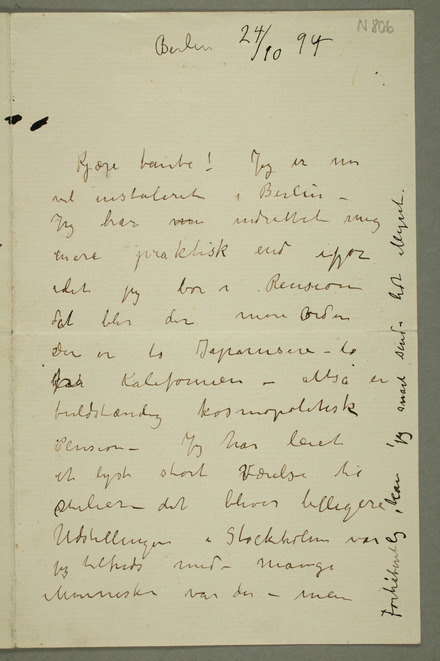 N 806
Berlin 24/10 94
Kjære tante! Jeg er nu
vel instaleret i Berlin –
Jeg har indrettet mig
mere praktisk end ifjor
idet jeg bor i Pension
det blir der mere orden
Der er to Japanisere – to
fra Kaliformien – altså en
fuldstændig kosmopolitisk
Pension – Jeg har leiet
et lyst stort Værelse til
atelier – det bliver billigere
Udstillingen i Stockholm var
jeg tilfreds med – mange
Mennesker var der – men
forhåbentlig kan jeg snart sende lidt Mynt.